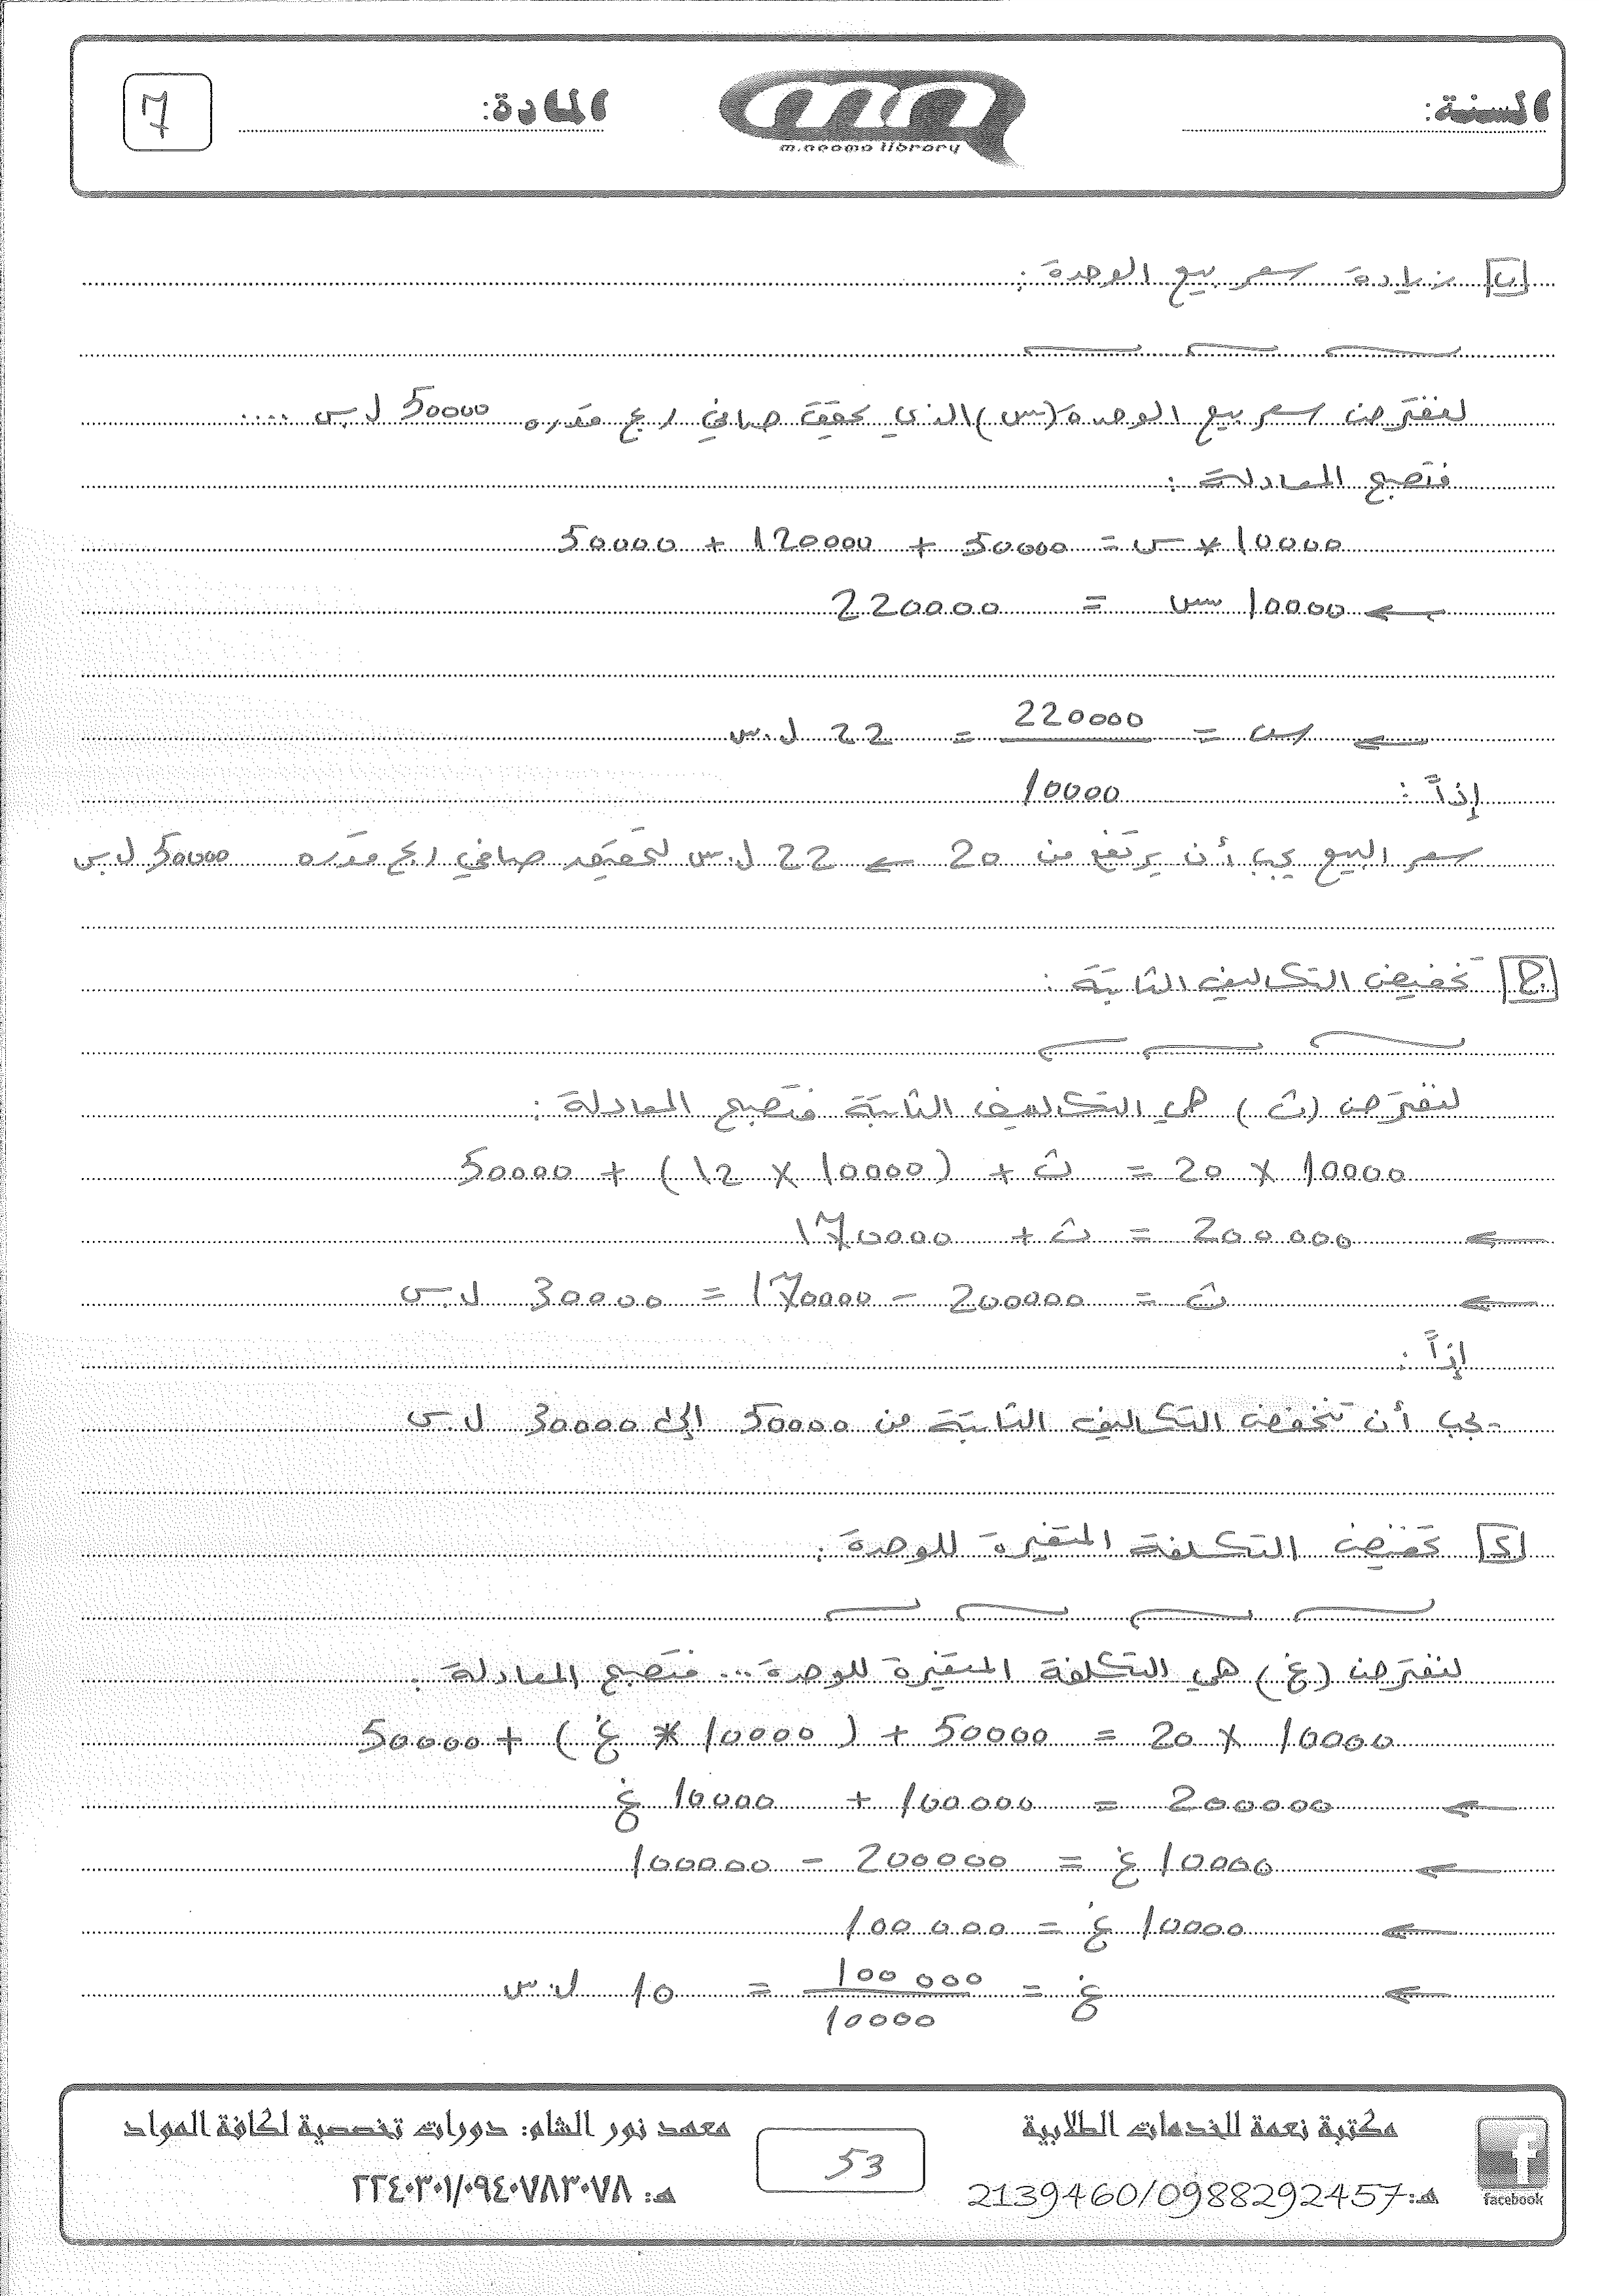 السنة:
m.neoma library
المادة:
7
ب زيادة سعر بيع الوحدة:
لنفترض سعر بيع الوحدة (س) الذي يحقق صافي ربح قدره 50000 ل.س ....
فتصبح المعادلة:
10000 * س = 50000 + 120000 + 50000
← 10000 س = 220000
← س = 220000 / 10000 = 22 ل.س
إذاً:
سعر البيع يجب أن يرتفع من 20 ← 22 ل.س لتحقيق صافي ربح قدره 50000 ل.س
ج تخفيض التكاليف الثابتة:
لنفترض (ث) هي التكاليف الثابتة فتصبح المعادلة:
10000 × 20 = ث + (10000 × 12) + 50000
← 200000 = ث + 170000
← ث = 200000 - 170000 = 30000 ل.س
إذاً:
يجب أن تنخفض التكاليف الثابتة من 50000 إلى 30000 ل.س
د تخفيض التكلفة المتغيرة للوحدة:
لنفترض (غ) هي التكلفة المتغيرة للوحدة... فتصبح المعادلة:
10000 × 20 = 50000 + (10000 * غ) + 50000
← 200000 = 100000 + 10000 غ
← 10000 غ = 200000 - 100000
← 10000 غ = 100000
← غ = 100000 / 10000 = 10 ل.س
facebook
مكتبة نعمة للخدمات الطلابية
هـ: 2139460/0988292457
53
معهد نور الشام: دورات تخصصية لكافة المواد
هـ: ٢٢٤٠٣٠١/٠٩٤٠٧٨٣٠٧٨